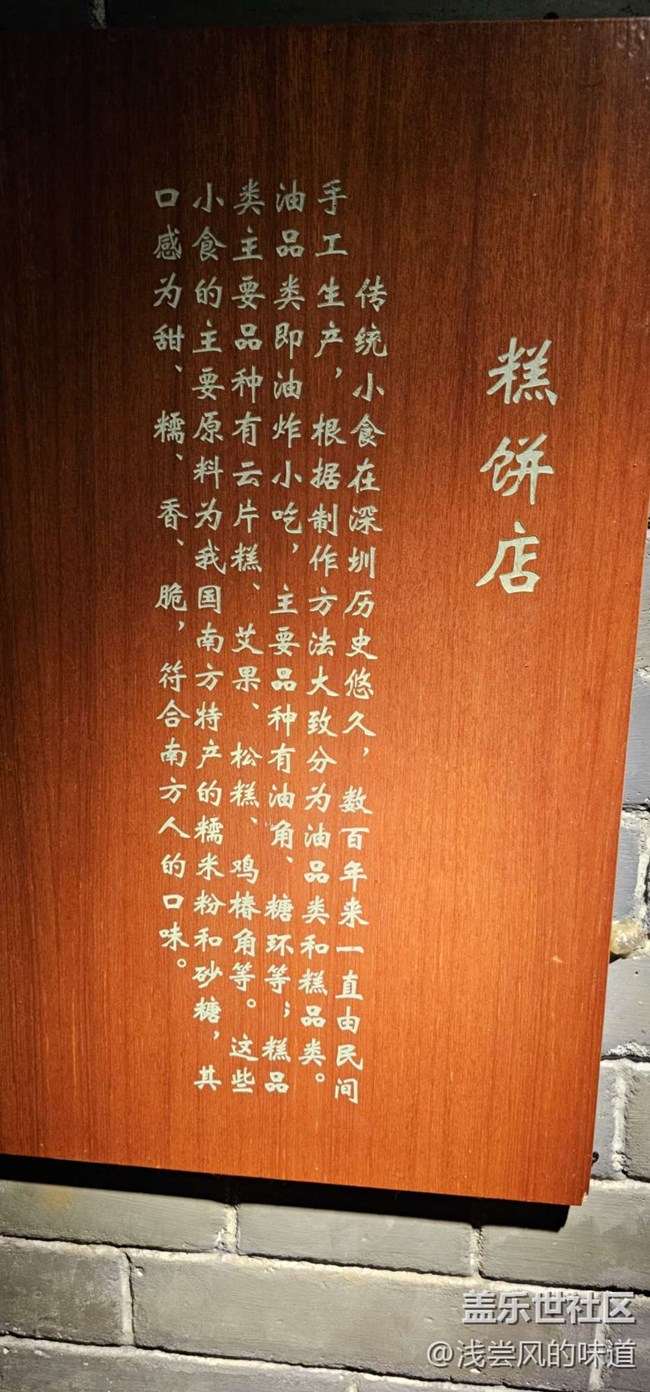 糕饼店
传统小食在深圳历史悠久，数百年来一直由民间
手工生产，根据制作方法大致分为油品类和糕品类。
油品类即油炸小吃，主要品种有油角、糖环等；糕品
类主要品种有云片糕、艾果、松糕、鸡椿角等。这些
小食的主要原料为我国南方特产的糯米粉和砂糖，其
口感为甜、糯、香、脆，符合南方人的口味。
盖乐世社区
@浅尝风的味道